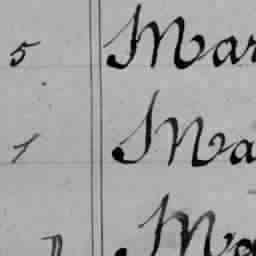 5 Mar
1 Ma
Ma